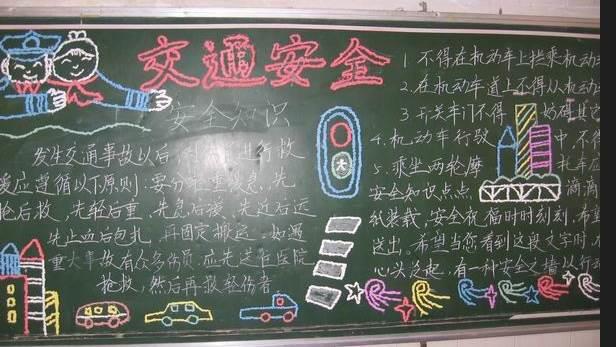 交通安全
安全知识
发生交通事故以后,进行救
援应遵循以下原则:要分轻重缓急,先
抢后救,先轻后重,先急后缓,先近后远
先止血后包扎,再固定搬运。如遇
重大事故有众多伤员,应先送往医院
抢救,然后再救轻伤者。
大
1 不得在机动车上拦乘机动
2.在机动车道上不得从机动
3.开关车门不得妨碍其它
4.机动车行驶中,不得
5.乘坐两轮摩托车应
安全知识点点滴滴
纸装载,安全祝福时时刻刻,希望
送出。希望当您看到这段文字时,
心头泛起,有一种安全之墙以行动